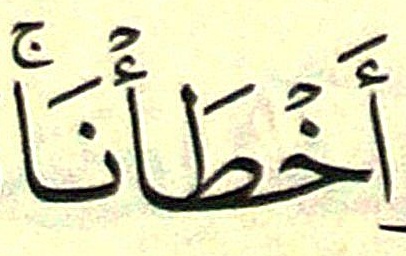 أَخْطَأْنَاۚ